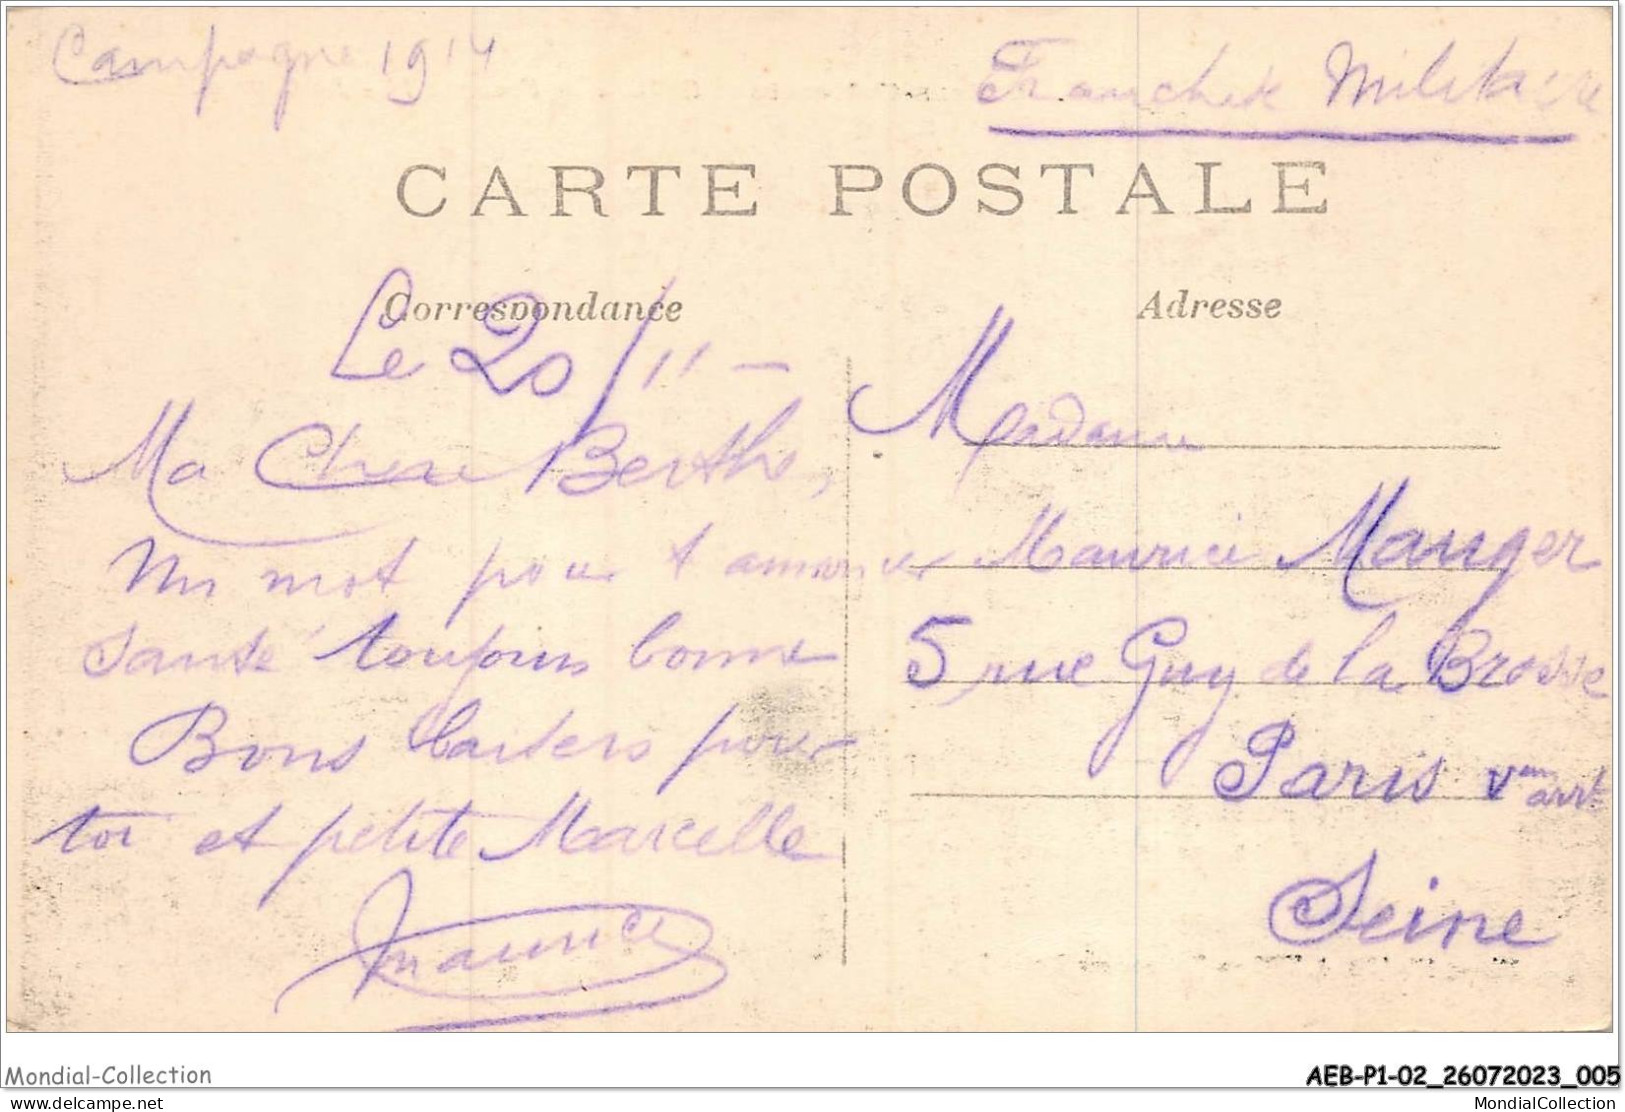 Campagne 1914
Franchise Militaire
CARTE POSTALE
Correspondance
Adresse
Le 20/11 -
Ma Chere Berthe,
Un mot pour t annoncer
santé toujours bonne
Bons baisers pour
toi et petite Marcelle
Maurice
Madame
Maurice Mauger
5 rue Guy de la Brosse
Paris Vème arrt
Seine
Mondial-Collection
AEB-P1-02_26072023_005
delcampe.net
MondialCollection